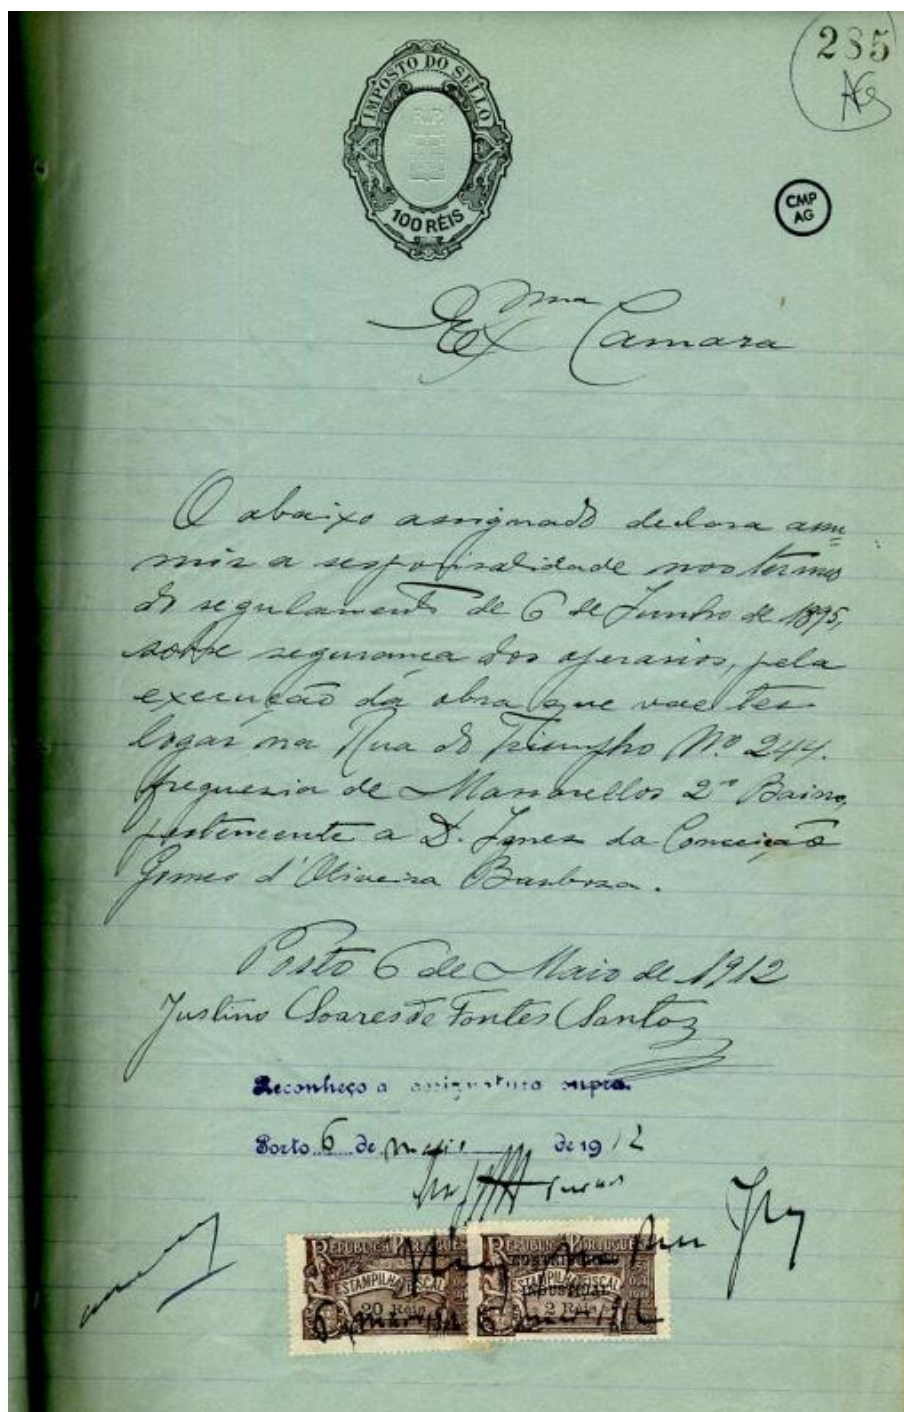 285
IMPOSTO DO SELLO
R.P.
100 RÉIS
CMP
AG
Exma Camara
O abaixo assignado declara assu=
mir a responsalidade nos termos
do regulamento de 6 de Junho de 1895,
sobre segurança dos operarios, pela
execução da obra que vae ter
logar na Rua do Triumpho Nº 244.
freguezia de Massarellos 2º Bairro,
pertencente a D. Ignez da Conceição
Gomes d'Oliveira Barboza.
Porto 6 de Maio de 1912
Justino Soares de Fontes Santos
Reconheço a assignatura supra.
Porto 6 de maio de 1912
REPUBLICA PORTUGUESA REPUBLICA PORTUGUESA
ESTAMPILHA FISCAL CONTRIBUIÇÃO
ESTAMPILHA FISCAL
INDUSTRIAL
20 Réis 2 Réis
6 maio 1912 6 maio 1912